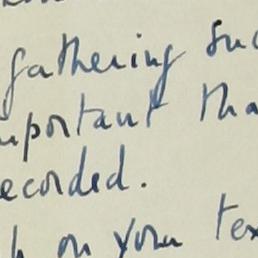 gathering suc
mportant tha
ecorded.
h on your tex